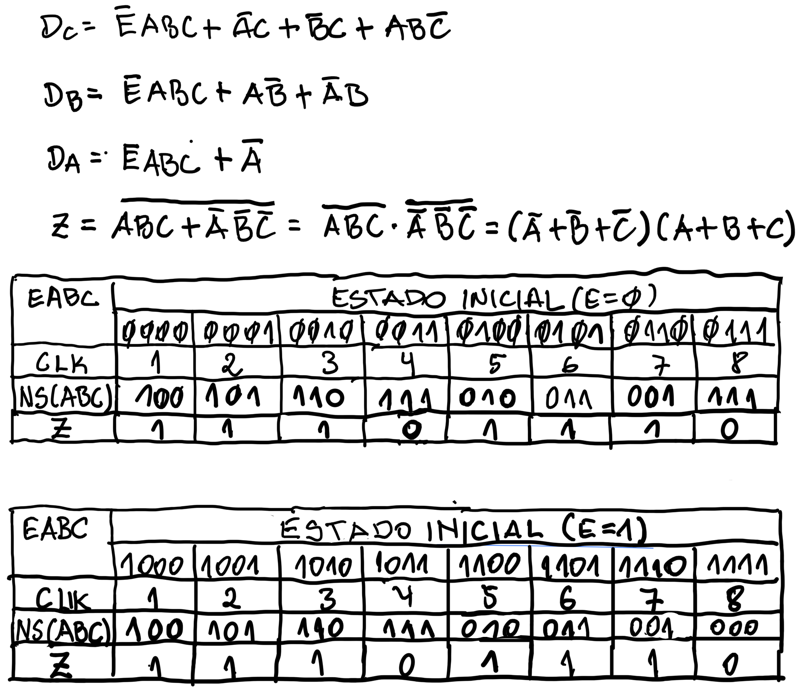 D_C = E̅ABC + A̅C + B̅C + ABC̅
D_B = E̅ABC + AB̅ + A̅B
D_A = E̅ABC + A̅
Z = \overline{ABC + A̅B̅C̅} = \overline{ABC} · \overline{A̅B̅C̅} = (A̅+B̅+C̅)(A+B+C)
EABC ESTADO INICIAL (E=0)
0000 0001 0010 0011 0100 0101 0110 0111
CLK 1 2 3 4 5 6 7 8
NS(ABC) 100 101 110 111 010 011 001 111
Z 1 1 1 0 1 1 1 0
EABC ESTADO INICIAL (E=1)
1000 1001 1010 1011 1100 1101 1110 1111
CLK 1 2 3 4 5 6 7 8
NS(ABC) 100 101 110 111 010 011 001 000
Z 1 1 1 0 1 1 1 0